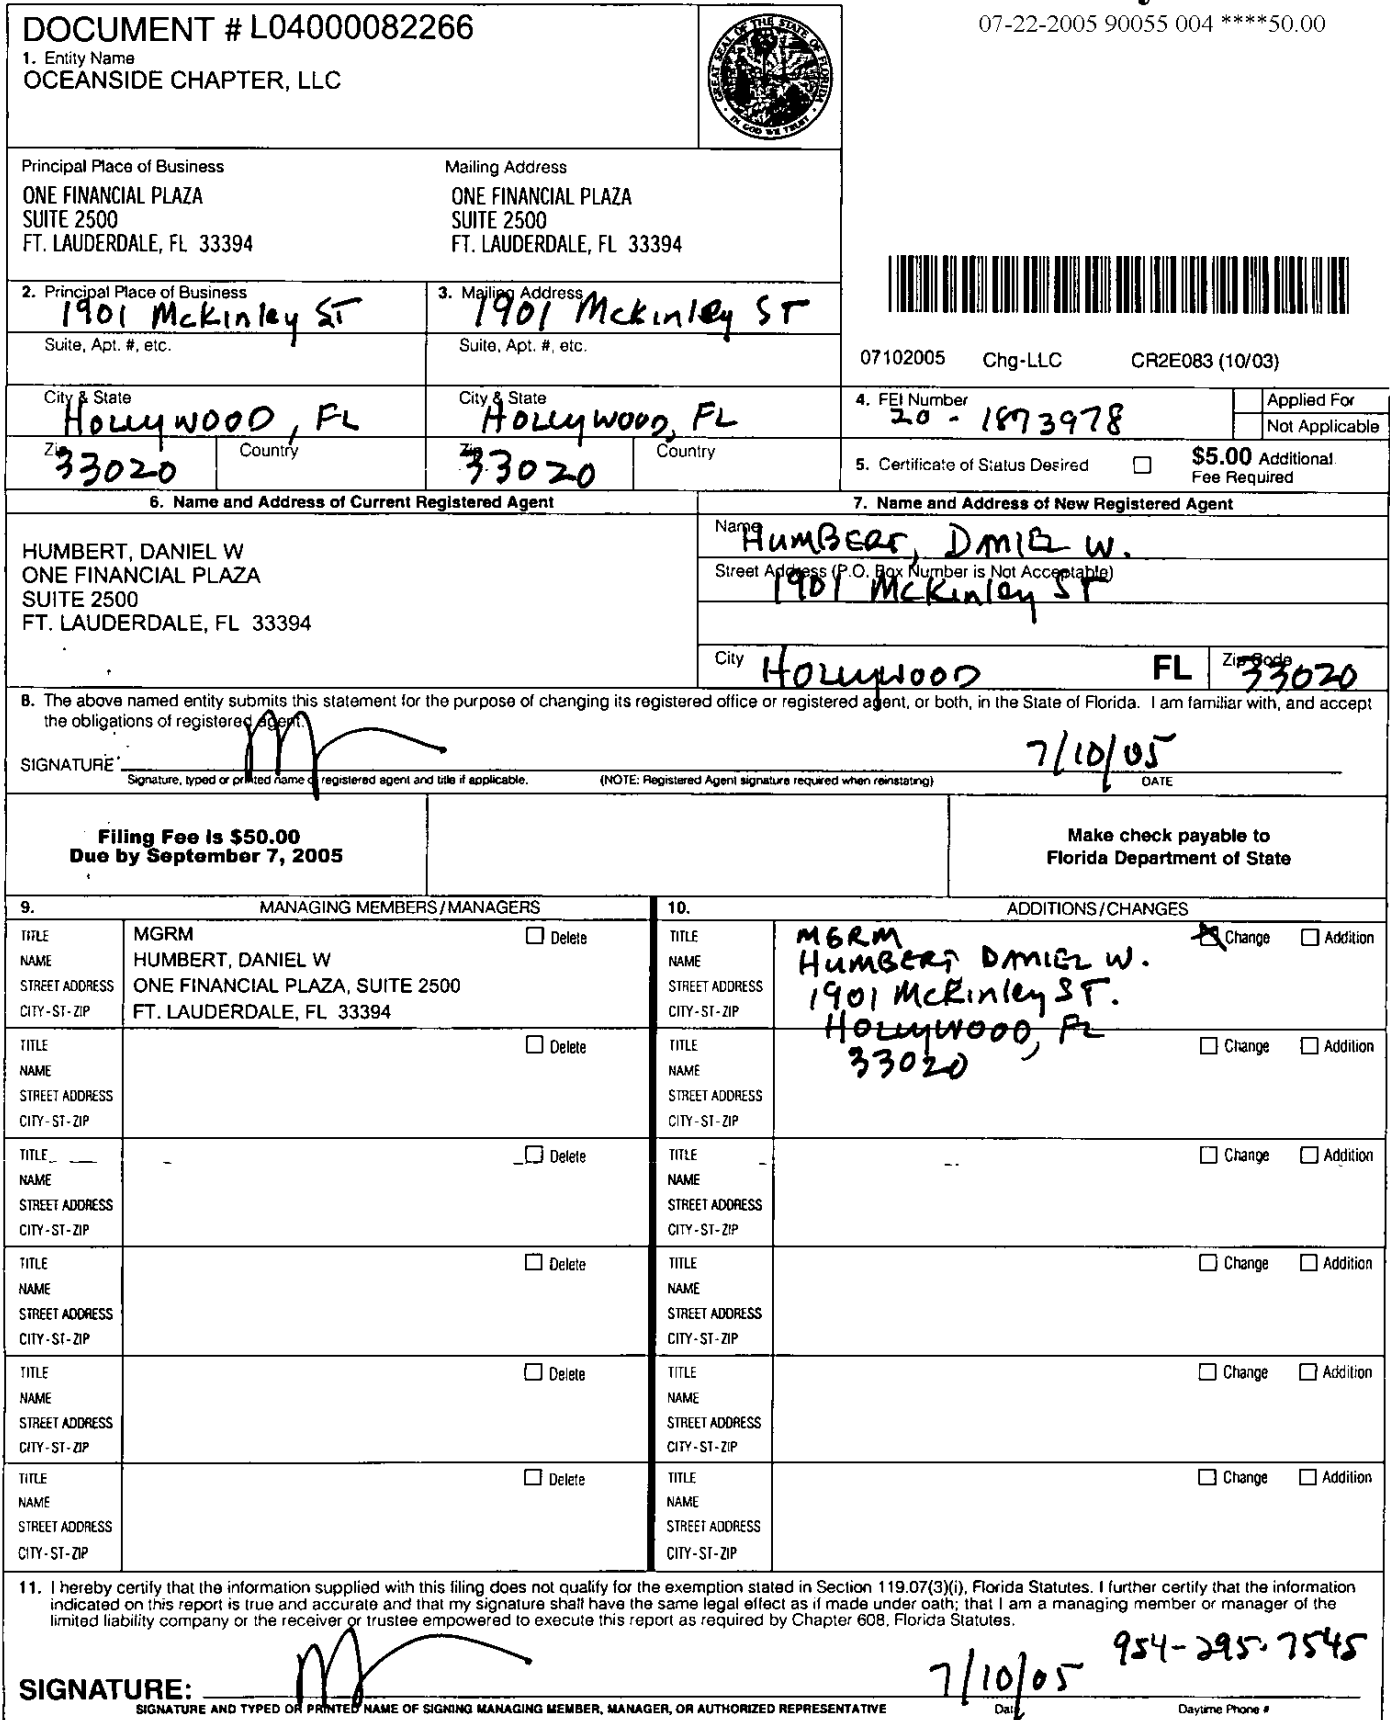 DOCUMENT # L04000082266
07-22-2005 90055 004 ****50.00
1. Entity Name
OCEANSIDE CHAPTER, LLC
GREAT SEAL OF THE STATE OF FLORIDA
IN GOD WE TRUST
Principal Place of Business
ONE FINANCIAL PLAZA
SUITE 2500
FT. LAUDERDALE, FL 33394
Mailing Address
ONE FINANCIAL PLAZA
SUITE 2500
FT. LAUDERDALE, FL 33394
2. Principal Place of Business
1901 McKinley ST
Suite, Apt. #, etc.
City & State
HOLLYWOOD, FL
Zip
33020
Country
3. Mailing Address
1901 McKinley ST
Suite, Apt. #, etc.
City & State
HOLLYWOOD, FL
Zip
33020
Country
07102005 Chg-LLC CR2E083 (10/03)
4. FEI Number
20-1873978
Applied For
Not Applicable
5. Certificate of Status Desired
$5.00 Additional
Fee Required
6. Name and Address of Current Registered Agent
HUMBERT, DANIEL W
ONE FINANCIAL PLAZA
SUITE 2500
FT. LAUDERDALE, FL 33394
7. Name and Address of New Registered Agent
Name
HUMBERT, DANIEL W.
Street Address (P.O. Box Number is Not Acceptable)
1901 McKinley ST
City HOLLYWOOD FL Zip Code 33020
8. The above named entity submits this statement for the purpose of changing its registered office or registered agent, or both, in the State of Florida. I am familiar with, and accept
the obligations of registered agent.
SIGNATURE 7/10/05
Signature, typed or printed name of registered agent and title if applicable. (NOTE: Registered Agent signature required when reinstating) DATE
Filing Fee is $50.00
Due by September 7, 2005
Make check payable to
Florida Department of State
9. MANAGING MEMBERS/MANAGERS
TITLE MGRM Delete
NAME HUMBERT, DANIEL W
STREET ADDRESS ONE FINANCIAL PLAZA, SUITE 2500
CITY-ST-ZIP FT. LAUDERDALE, FL 33394
TITLE Delete
NAME
STREET ADDRESS
CITY-ST-ZIP
TITLE Delete
NAME
STREET ADDRESS
CITY-ST-ZIP
TITLE Delete
NAME
STREET ADDRESS
CITY-ST-ZIP
TITLE Delete
NAME
STREET ADDRESS
CITY-ST-ZIP
TITLE Delete
NAME
STREET ADDRESS
CITY-ST-ZIP
10. ADDITIONS/CHANGES
TITLE MGRM Change Addition
NAME HUMBERT DANIEL W.
STREET ADDRESS 1901 McKinley ST.
CITY-ST-ZIP HOLLYWOOD, FL
33020
TITLE Change Addition
NAME
STREET ADDRESS
CITY-ST-ZIP
TITLE Change Addition
NAME
STREET ADDRESS
CITY-ST-ZIP
TITLE Change Addition
NAME
STREET ADDRESS
CITY-ST-ZIP
TITLE Change Addition
NAME
STREET ADDRESS
CITY-ST-ZIP
TITLE Change Addition
NAME
STREET ADDRESS
CITY-ST-ZIP
11. I hereby certify that the information supplied with this filing does not qualify for the exemption stated in Section 119.07(3)(i), Florida Statutes. I further certify that the information
indicated on this report is true and accurate and that my signature shall have the same legal effect as if made under oath; that I am a managing member or manager of the
limited liability company or the receiver or trustee empowered to execute this report as required by Chapter 608, Florida Statutes.
SIGNATURE: 7/10/05 954-295-7545
SIGNATURE AND TYPED OR PRINTED NAME OF SIGNING MANAGING MEMBER, MANAGER, OR AUTHORIZED REPRESENTATIVE Date Daytime Phone #